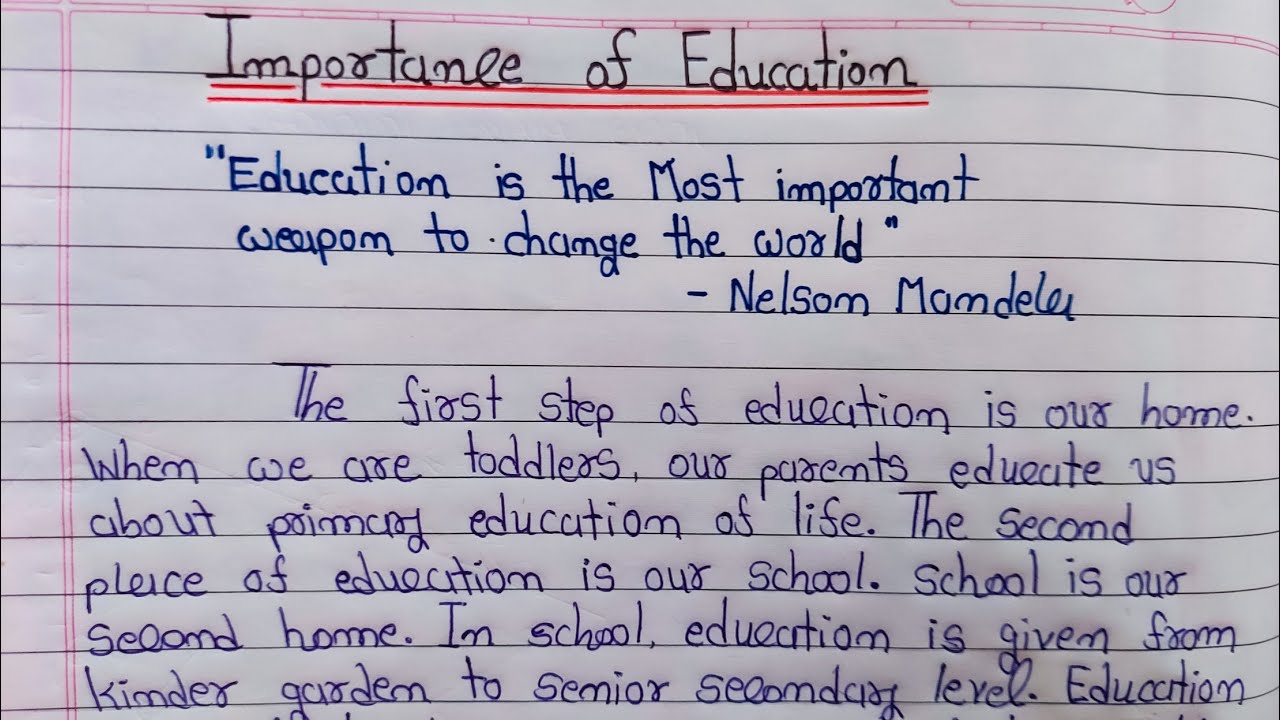 Importance of Education
"Education is the Most important
weapon to change the world"
- Nelson Mandela
The first step of education is our home.
When we are toddlers, our parents educate us
about primary education of life. The second
place of education is our school. School is our
second home. In school, education is given from
kinder garden to senior secondary level. Education